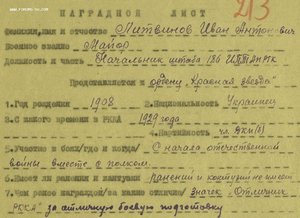 213
НАГРАДНОЙ ЛИСТ
Фамилия, имя и отчество Литвинов Иван Антонович
Военное звание Майор
Должность и часть Начальник штаба 186
Представляется к ордену "Красная звезда"
1. Год рождения 1908 2. Национальность Украинец
3. С какого времени в РККА 1929 года
4. Партийность чл. ВКП(б)
5. Участие в боях /где и когда/ С начала отечественной
войны вместе с полком.
6. Имеет ли ранения и контузии ранений и контузий не имеет
7. Чем ранее награжден /за какие отличия/ Значек "Отличник
РККА" за отличную боевую подготовку